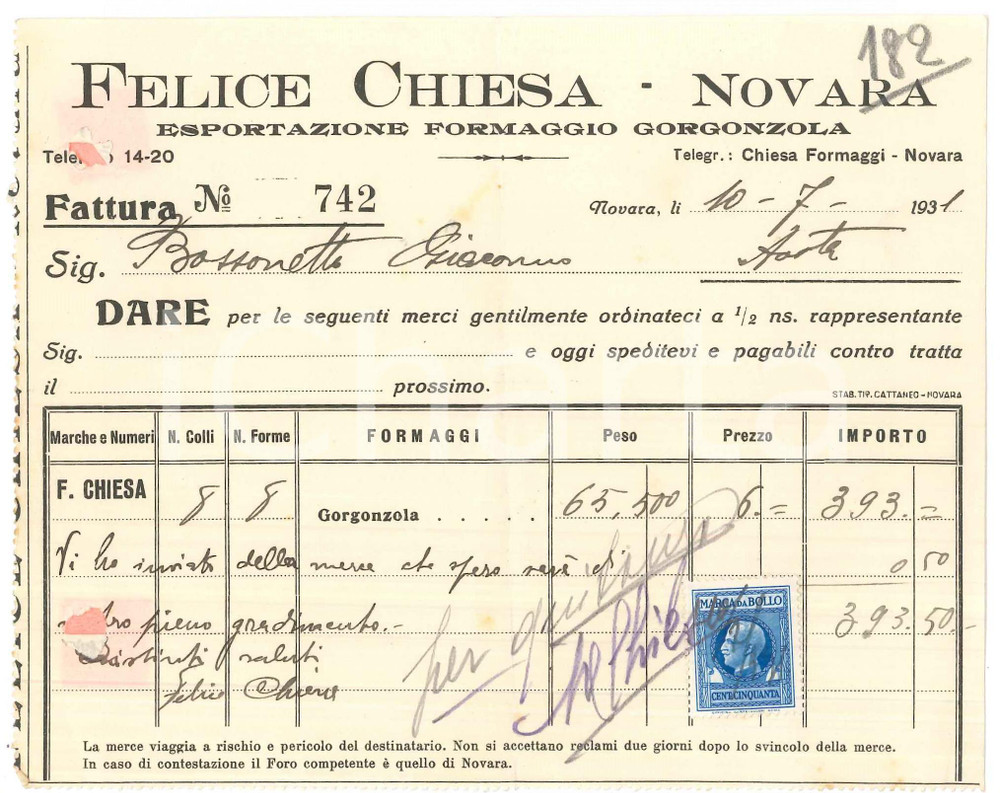 182
FELICE CHIESA - NOVARA
ESPORTAZIONE FORMAGGIO GORGONZOLA
14-20 Telegr.: Chiesa Formaggi - Novara
Fattura No 742 Novara, li 10 - 7 - 1931
Sig. Bossonetto Giacomo Aosta
DARE per le seguenti merci gentilmente ordinateci a 1/2 ns. rappresentante
Sig. e oggi speditevi e pagabili contro tratta
il prossimo.
STAB. TIP. CATTANEO - NOVARA
Marche e Numeri N. Colli N. Forme FORMAGGI Peso Prezzo IMPORTO
F. CHIESA 8 8 Gorgonzola . . . . . 65,500 6.= 393.=
Vi ho inviato della merce che spero sarà di 0 50
pieno gradimento.- 393.50.-
Distinti saluti
Felice Chiesa
per quietanza
MChiesa
MARCA DA BOLLO
CENT. CINQUANTA
La merce viaggia a rischio e pericolo del destinatario. Non si accettano reclami due giorni dopo lo svincolo della merce.
In caso di contestazione il Foro competente è quello di Novara.